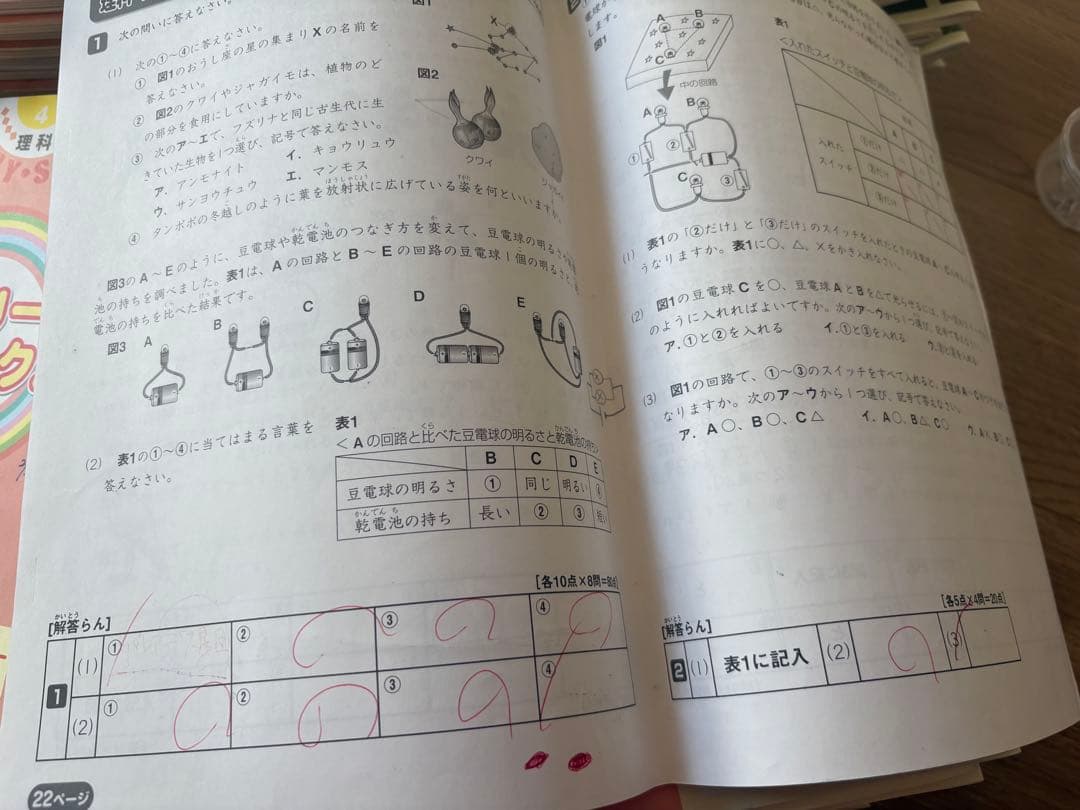 1 次の問いに答えなさい。
(1) 次の①~④に答えなさい。
① 図1のおうし座の星の集まりXの名前を
答えなさい。
② 図2のクワイやジャガイモは、植物のど
の部分を食用にしていますか。
③ 次のア~エで、フズリナと同じ古生代に生
きていた生物を1つ選び、記号で答えなさい。
ア. アンモナイト
イ. キョウリュウ
ウ. サンヨウチュウ
エ. マンモス
④ タンポポの冬越しのように葉を放射状に広げている姿を何といいますか。
図1
X
図2
クワイ
図3のA~Eのように、豆電球や乾電池のつなぎ方を変えて、豆電球の明るさ
池の持ちを調べました。表1は、Aの回路とB~Eの回路の豆電球1個の明るさと
電池の持ちを比べた結果です。
図3
A
B
C
D
E
(2) 表1の①~④に当てはまる言葉を
答えなさい。
表1
<Aの回路と比べた豆電球の明るさと乾電池の持ち>
B C D E
豆電球の明るさ ① 同じ 明るい ④
乾電池の持ち 長い ② ③ 短い
[各10点×8問=80点]
[解答らん]
1
(1) ① ② ③ ④
(2) ① ② ③ ④
22ページ
4
理科
図1
A
B
C
中の回路
A
B
①
②
C
③
表1
<入れたスイッチと豆電球の
入れた
スイッチ
①だけ
②だけ
③だけ
(1) 表1の「②だけ」と「③だけ」のスイッチを入れたときの豆電球A~C
うなりますか。表1に○、△、×をかき入れなさい。
(2) 図1の豆電球Cを○、豆電球AとBを△で光らせるには、
のように入れればよいですか。次のア~ウから1つ選び、記号で答えなさい。
ア. ①と②を入れる
イ. ①と③を入れる
ウ. ②と③を入れる
(3) 図1の回路で、①~③のスイッチをすべて入れると、豆電球A~C
なりますか。次のア~ウから1つ選び、記号で答えなさい。
ア. A○、B○、C△
イ. A○、B△、C○
[各5点×4問=20点]
[解答らん]
2 (1) 表1に記入 (2) (3)